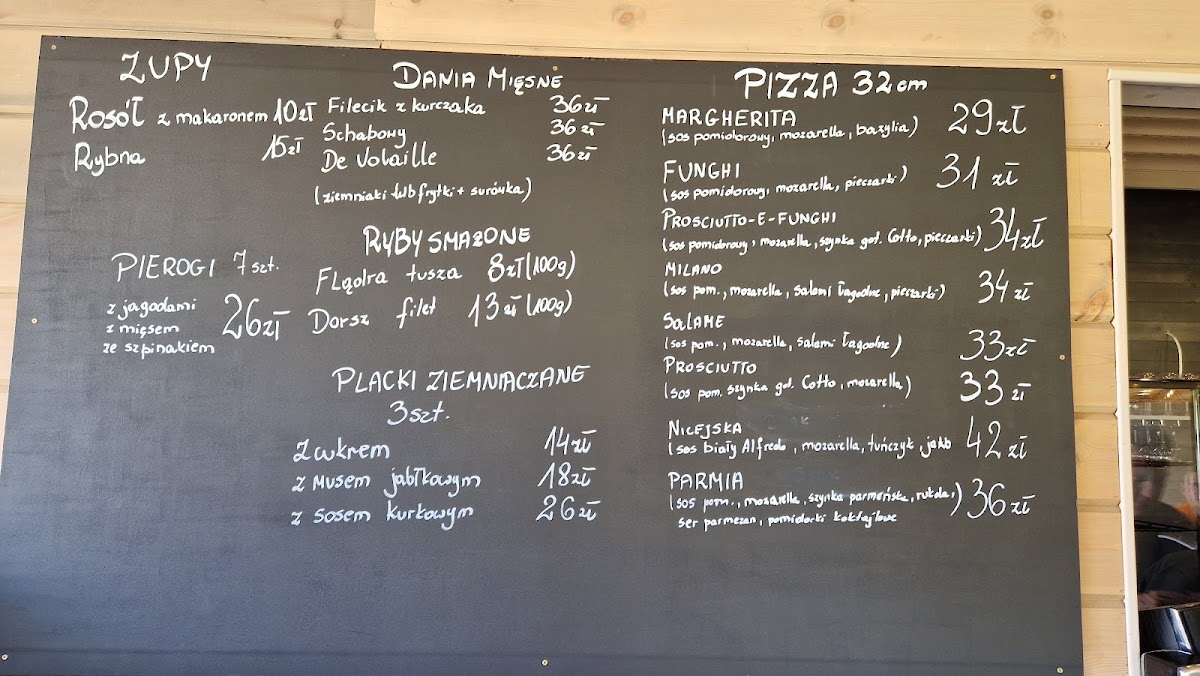 ZUPY
Rosół z makaronem 10zł
Rybna 15zł
PIEROGI 7szt.
z jagodami
z mięsem 26zł
ze szpinakiem
DANIA MIĘSNE
Filecik z kurczaka 36zł
Schabowy 36zł
De Volaille 36zł
(ziemniaki lub frytki + surówka)
RYBY SMAŻONE
Flądra tusza 8zł (100g)
Dorsz filet 13zł (100g)
PLACKI ZIEMNIACZANE
3szt.
z cukrem 14zł
z musem jabłkowym 18zł
z sosem kurkowym 26zł
PIZZA 32cm
MARGHERITA 29zł
(sos pomidorowy, mozarella, bazylia)
FUNGHI 31zł
(sos pomidorowy, mozarella, pieczarki)
PROSCIUTTO-E-FUNGHI 34zł
(sos pomidorowy, mozarella, szynka got. Cotto, pieczarki)
MILANO 34zł
(sos pom., mozarella, salami łagodne, pieczarki)
SALAME 33zł
(sos pom., mozarella, salami łagodne)
PROSCIUTTO 33zł
(sos pom. szynka got. Cotto, mozarella)
NICEJSKA 42zł
(sos biały Alfredo, mozarella, tuńczyk, jajko
PARMIA 36zł
(sos pom., mozarella, szynka parmeńska, rukola,
ser parmezan, pomidorki koktajlowe)